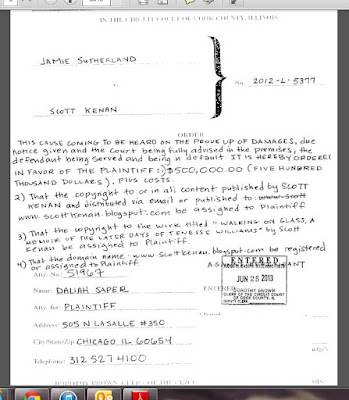 IN THE CIRCUIT COURT OF COOK COUNTY, ILLINOIS
JAMIE SUTHERLAND
v.
No. 2012-L-5377
SCOTT KENAN
ORDER
THIS CAUSE COMING TO BE HEARD ON THE PROVE UP OF DAMAGES, due
notice given and the Court being fully advised in the premises, the
defendant being served and being in default IT IS HEREBY ORDERED
IN FAVOR OF THE PLAINTIFF: 1) $500,000.00 (FIVE HUNDRED
THOUSAND DOLLARS), plus COSTS.
2) That the copyright to or in all content published by SCOTT
KENAN and distributed via email or published to: www.scott
www.scottkenan.blogspot.com be assigned to Plaintiff
3) That the copyright to the work titled "WALKING ON GLASS, A
MEMOIR OF THE LATER DAYS OF TENESSE WILLIAMS" by Scott
Kenan be assigned to Plaintiff.
4) That the domain name: www.scottkenan.blogspot.com be registered
or assigned to Plaintiff
Atty. No.: 51967
Name: DALIAH SAPER
ENTERED
ENTERED
DOROTHY BROWN
CLERK OF THE CIRCUIT COURT
OF COOK COUNTY, IL
DEPUTY CLERK
JUN 25 2013
Atty. for: PLAINTIFF
Address: 505 N LASALLE #350
City/State/Zip: CHICAGO IL 60654
Telephone: 312 527 4100